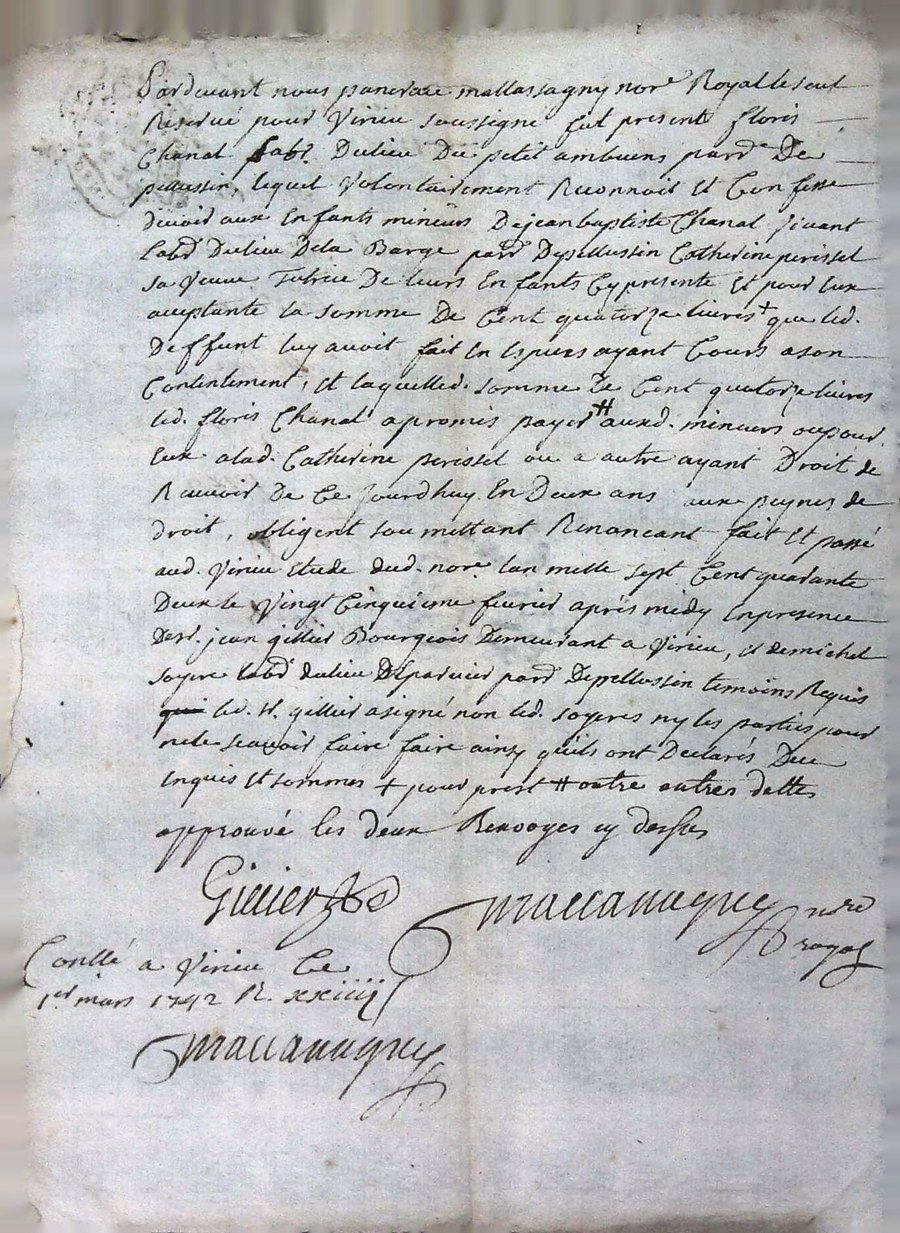 Pardevant nous pancrace mallassagny nore Royal le seul
Reservé pour Virieu soussigné fut present floris
Chanal labr. Dulieu Du petit ambuens parr.e De
pellussin, lequel Volontairement Reconnoit Et Confesse
devoir aux Enfants mineurs De jean baptiste Chanal vivant
Labr Dulieu De la Barge parr. De pellussin Catherine perissel
sa veuve Tutrice De leurs Enfants Cy presente Et pour Eux
aceptante la somme De Cent quatorze livres + que led.
Deffunt luy avoit fait En Espèces ayant Cours a son
Contentement, Et laquelled. somme De Cent quatorze livres
led. floris Chanal a promis payer # auxd. mineurs ou pour
Eux a lad. Catherine perissel ou a autre ayant Droit de
Recevoir De Ce jourdhuy En Deux ans aux peynes de
droit, obligent soumettant Renonceant fait Et passé
aud. Virieu Etude dud. nore lan mille sept Cent quarante
Deux le Vingt Cinquieme fevrier après midy En presence
de sr. jean gillier Bourgeois Demeurant a Virieu, Et de michel
soyere labr dulieu De parr. De pellussin temoins Requis
led. sr. gillier a signé non led. soyeres ny les parties pour
ne le scavoir faire faire ainsy quils ont Declarés De ce
Enquis Et sommes + pour prest # outre autres dettes
approuvé les deux Renvoyes cy dessus
Gillier
Maccanagny nore
royal
Conllé a Virieu Ce
1er mars 1742 R. xxiiij s
Maccanagny